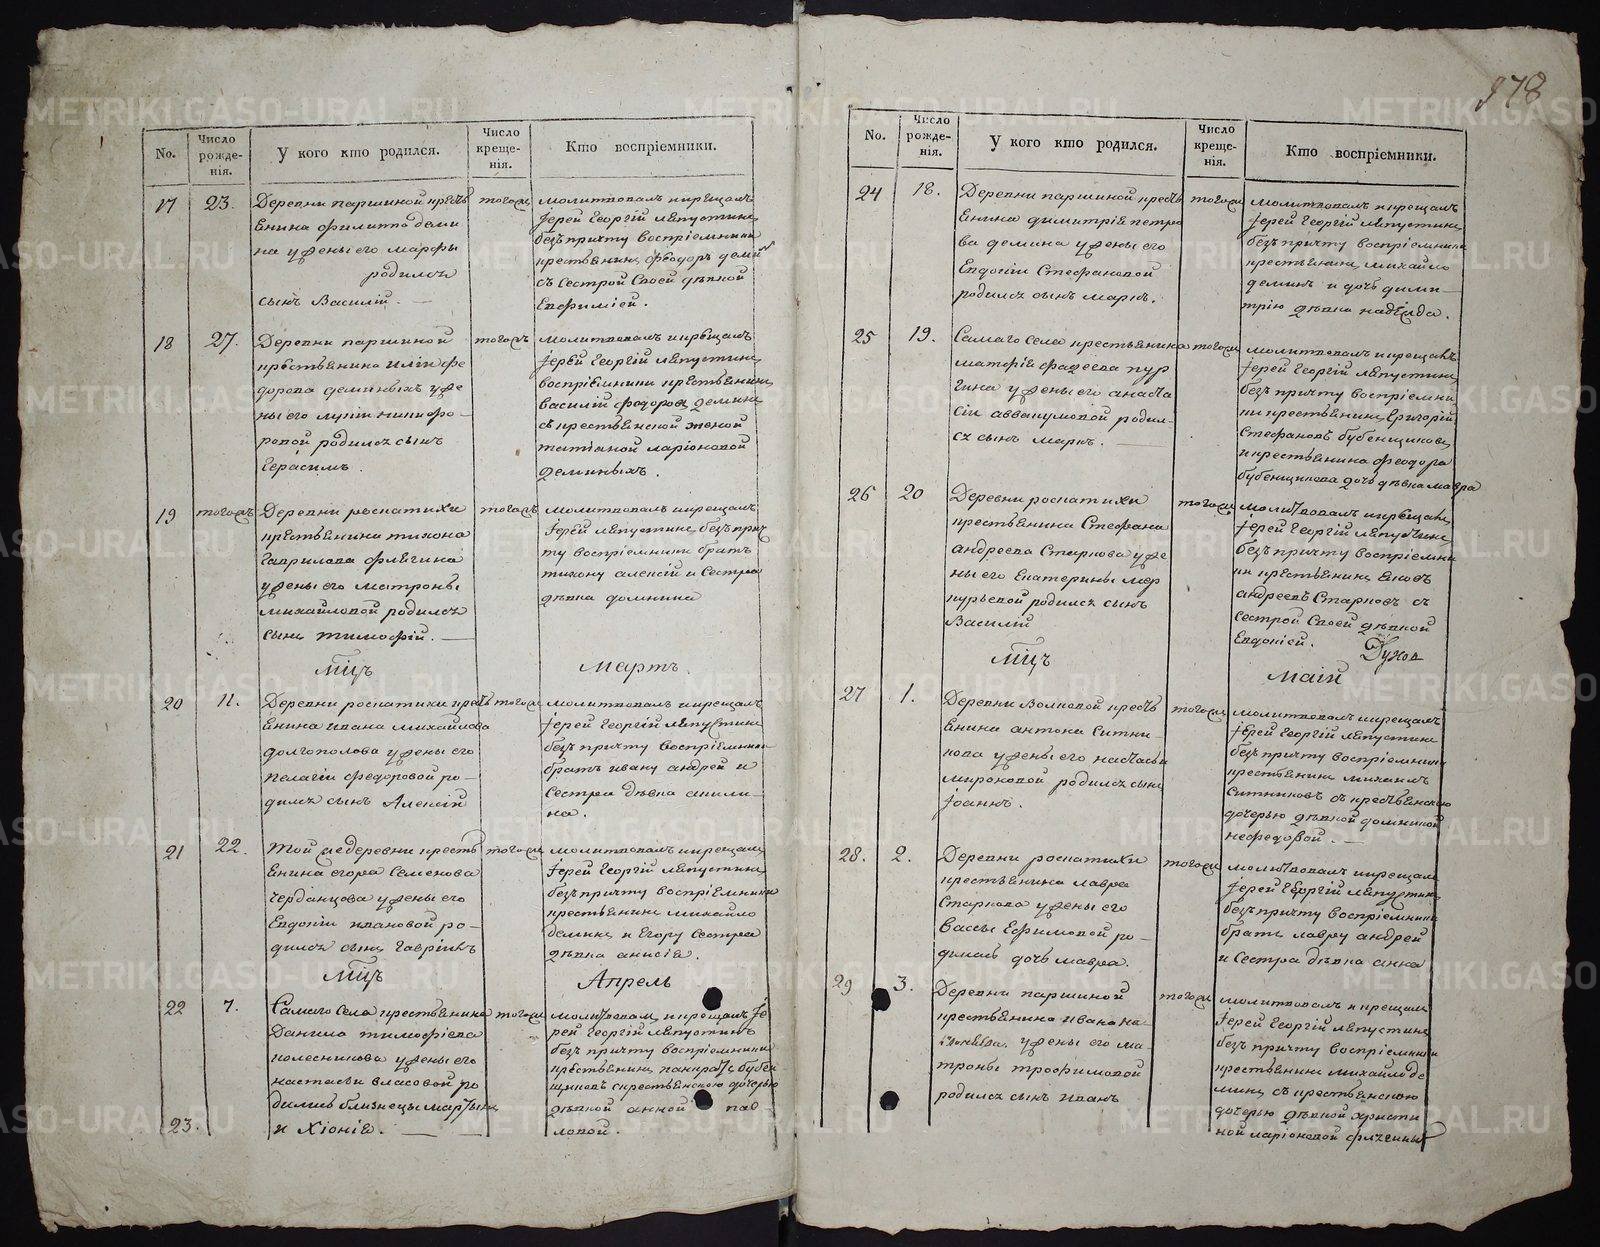 978
No.
Число рожде-нія.
У кого кто родился.
Число креще-нія.
Кто воспріемники.
17
23.
Деревни паршиной кресть
янина филипа деми
на у жены его марфы
родился
сынъ Василій.
тогожъ
молитвовалъ и крещалъ
Іерей Георгій Лепустинъ
безъ причту воспріемники
крестьянинъ Феодоръ демин
съ сестрой своей дѣвкой
Евфиміей.
18
27.
Деревни паршиной
крестьянина Иліи фе
дорова деминыхъ у же
ны его
родился сынъ
Герасимъ.
тогожъ
молитвовалъ и крещалъ
Іерей Георгій Лепустинъ
воспріемники крестьянинъ
Василій федоровъ деминъ
съ крестьянской женой
татіаной ларіоновой
деминыхъ.
19
тогожъ
Деревни роспатихи
крестьянина тихона
Гаврилова флягина
у жены его матроны
михайловой родился
сынъ тимофій.
тогожъ
молитвовалъ и крещалъ
Іерей Лепустинъ безъ прич
ту воспріемники братъ
тихону алексій и сестра
дѣвка домника
мцъ
Мартъ.
20
11.
Деревни роспатихи кресть
янина ивана михайлова
долгополова у жены его
пелагіи федоровой ро-
дился сынъ Алексій
тогожъ
молитвовалъ и крещалъ
Іерей Георгій Лепустинъ
безъ причту воспріемники
братъ ивану андрей и
сестра дѣвка акили-
на.
21
22.
той же деревни кресть
янина егора Семенова
Черданцова у жены его
Евдокіи ивановой ро-
дился сынъ Гавріилъ
тогожъ
молитвовалъ и крещалъ
Іерей Георгій Лепустинъ
безъ причту воспріемники
крестьянинъ михайло
деминъ и Егору сестра
дѣвка анисія.
мцъ
Апрель
22
7.
23.
Самаго села крестьянина
Данила тимофіева
колесникова у жены его
настасьи власовой ро
дились близнецы мартынъ
и Хіонія.
тогожъ
молитвовалъ и крещалъ Іе
рей Георгій Лепустинъ
безъ причту воспріемники
крестьянинъ панкратъ бубен
щиковъ с крестьянскою дочерью
дѣвкой анной пав-
ловой.
No.
Число рожде-нія.
У кого кто родился.
Число креще-нія.
Кто воспріемники.
24
18.
Деревни паршиной кресть
янина димитрія петро
ва демина у жены его
Евдокіи Стефановой
родился сынъ маркъ.
тогожъ
молитвовалъ и крещалъ
Іерей Георгій Лепустинъ
безъ причту воспріемники
крестьянинъ михайло
деминъ и дочь дими-
трію дѣвка надежда.
25
19.
Самаго села крестьянина
матфія фадеева кур
гина у жены его анаста
сіи аввакумовой родил-
ся сынъ маркъ.
тогожъ
молитвовалъ и крещалъ
Іерей Георгій Лепустинъ
безъ причту воспріемни
ки крестьянинъ Григорій
Стефановъ бубенщиковъ
и крестьянина феодора
бубенщикова дочь дѣвка мавра
26
20
Деревни роспатихи
крестьянина Стефана
андреева Старкова у же
ны его Екатерины мер
курьевой родился сынъ
Василій
тогожъ
молитвовалъ и крещалъ
Іерей Георгій Лепустинъ
безъ причту воспріемни
ки крестьянинъ яковъ
андреевъ Старковъ съ
сестрой своей дѣвкой
Евдокіей.
мцъ
Маій
27
1.
Деревни Волковой кресть
янина антона Ситни
кова у жены его настасьи
мироновой родился сынъ
Іоаннъ.
тогожъ
молитвовалъ и крещалъ
Іерей Георгій Лепустинъ
безъ причту воспріемники
крестьянинъ михаилъ
Ситниковъ съ крестьянскою
дочерью дѣвкой домникой
нефедовой.
28.
2.
Деревни роспатихи
крестьянина лавра
Старкова у жены его
Вассы Ефимовой ро-
дилась дочь мавра.
тогожъ
молитвовалъ и крещалъ
Іерей Георгій Лепустинъ
безъ причту воспріемники
братъ лавру андрей
и сестра дѣвка анна
29
3.
Деревни паршиной
крестьянина ивана
у жены его ма-
троны трофимовой
родился сынъ иванъ
тогожъ
молитвовалъ и крещалъ
Іерей Георгій Лепустинъ
безъ причту воспріемники
крестьянинъ михайло де
минъ съ крестьянскою
дочерью дѣвкой христи
ной ларіоновой флягиныхъ
METRIKI.GASO-URAL.RU